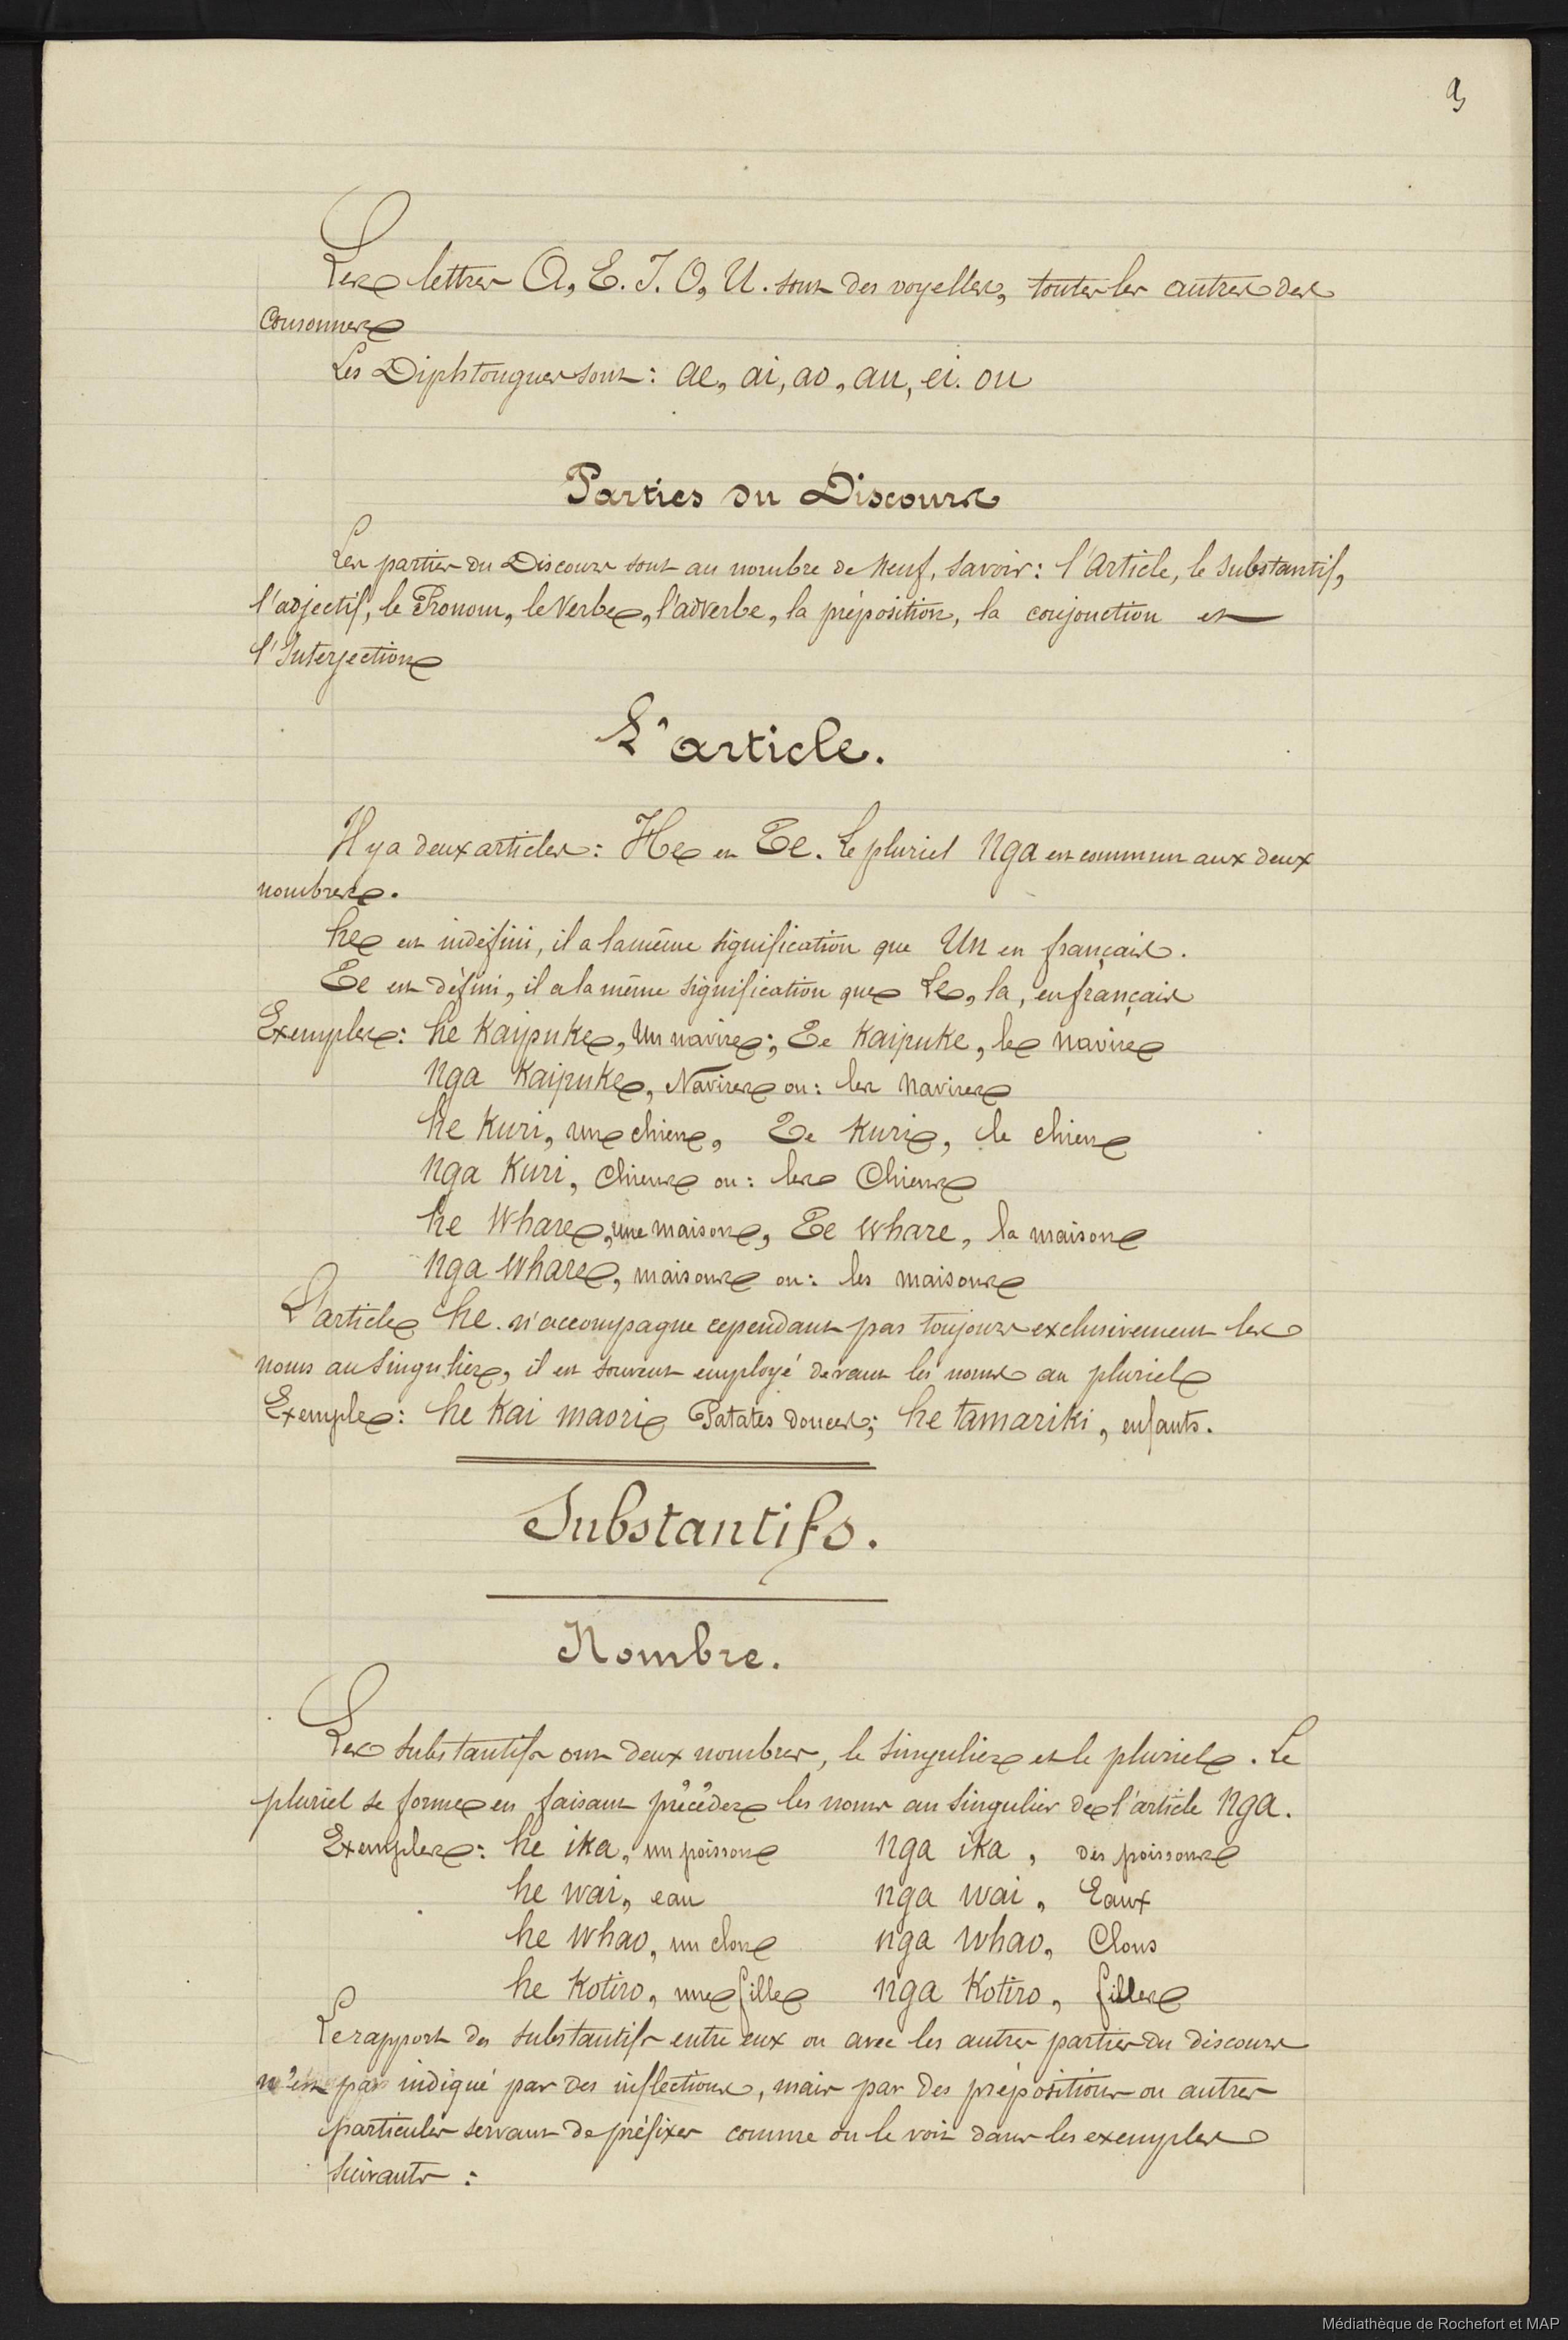 3
Les lettres A, E. I. O, U. sont des voyelles, toutes les autres des
Consonnes
Les Diphtongues sont: ae, ai, ao, au, ei. ou
Parties du Discours
Les parties du Discours sont au nombre de Neuf, savoir: l'Article, le substantif,
l'adjectif, le Pronom, le Verbe, l'adverbe, la préposition, la conjonction et
l'Interjection
L'article.
Il y a deux articles: He et Te. Le pluriel Nga est commun aux deux
nombres.
he est indéfini, il a la même signification que Un en français.
Te est défini, il a la même signification que Le, la, en français
Exemples: he Kaipuke, Un navire; Te Kaipuke, le navire
Nga Kaipuke, Navires ou: les Navires
he Kuri, un chien, Te Kuri, le chien
Nga Kuri, Chiens ou: les Chiens
he Whare, une maison, Te Whare, la maison
Nga Whare, maisons ou: les maisons
L'article he. n'accompagne cependant pas toujours exclusivement les
noms au Singulier, il est souvent employé devant les noms au pluriel
Exemple: he Kai maori Patates douces; he tamariki, enfants.
Substantifs.
Nombre.
Les substantifs ont deux nombres, le singulier et le pluriel. Le
pluriel se forme en faisant précéder les noms au Singulier de l'article Nga.
Exemples: he ika, un poisson nga ika, des poissons
he wai, eau nga wai, Eaux
he whao, un clou nga whao, Clous
he Kotiro, une fille nga Kotiro, filles
Le rapport des substantifs entre eux ou avec les autres parties du discours
n'est pas indiqué par des inflections, mais par des prépositions ou autres
particules servant de préfixes comme on le voit dans les exemples
suivants:
Médiathèque de Rochefort et MAP